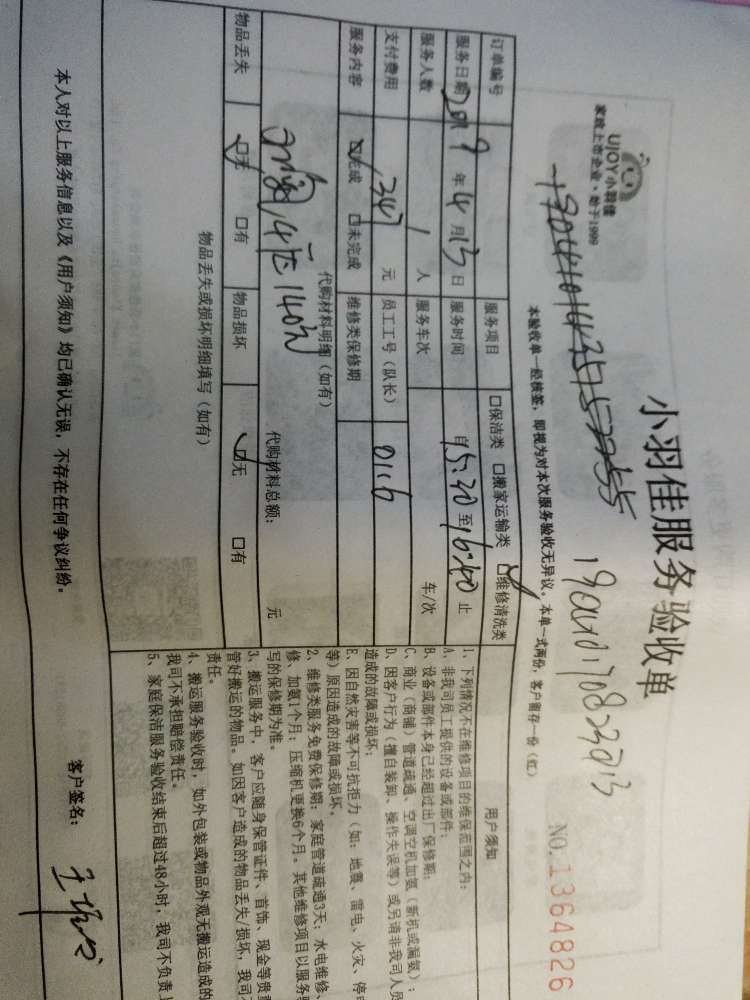 UJOY小羽佳
家政上市企业·始于1999
小羽佳服务验收单
NO.1364826
本验收单一经核签，即视为对本次服务验收无异议。本单一式两份，客户留存一份（红）
订单编号
服务项目 口保洁类 口搬家运输类 口维修清洗类
服务日期 2019年4月13日 服务时间 自15:20至16:40止
服务人数 1人 服务车次 车/次
支付费用 347元 员工工号（队长） 0116
服务内容 口完成 口未完成 维修类保修期
代购材料明细（如有）
代购材料总额： 元
物品丢失 口无 口有 物品损坏 口无 口有
物品丢失或损坏明细填写（如有）
用户须知
1、下列情况不在维修项目的维保范围之内：
A、非我司员工提供的设备或部件；
B、设备或部件本身已经超过出厂保修期；
C、商业（商铺）管道疏通、空调空机加氨（新机或漏氨）；
D、因客户行为（擅自装卸、操作失误等）或另请非我司人员
造成的故障或损坏；
E、因自然灾害等不可抗拒力（如：地震、雷电、火灾、停电
等）原因造成的故障或损坏。
2、维修类服务免费保修期：家庭管道疏通3天；水电维修、
修、加氨1个月；压缩机更换6个月。其他维修项目以服务
写的保修期为准。
3、搬运服务中，客户应随身保管证件、首饰、现金等贵重
管好搬运的物品。如因客户造成的物品丢失/损坏，我司不
责任。
4、搬运服务验收时，如外包装或物品外观无搬运造成的
我司不承担赔偿责任。
5、家庭保洁服务验收结束后超过48小时，我司不负责上
本人对以上服务信息以及《用户须知》均已确认无误，不存在任何争议纠纷。
客户签名：